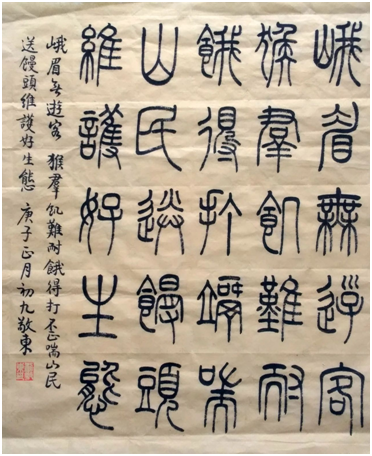 峨眉無遊客
猴羣飢難耐
餓得打竵喘
山民送饅頭
維護好生態
峨眉无遊客 猴羣飢難耐 餓得打歪喘山民
送饅頭維護好生態 庚子正月初九敬東